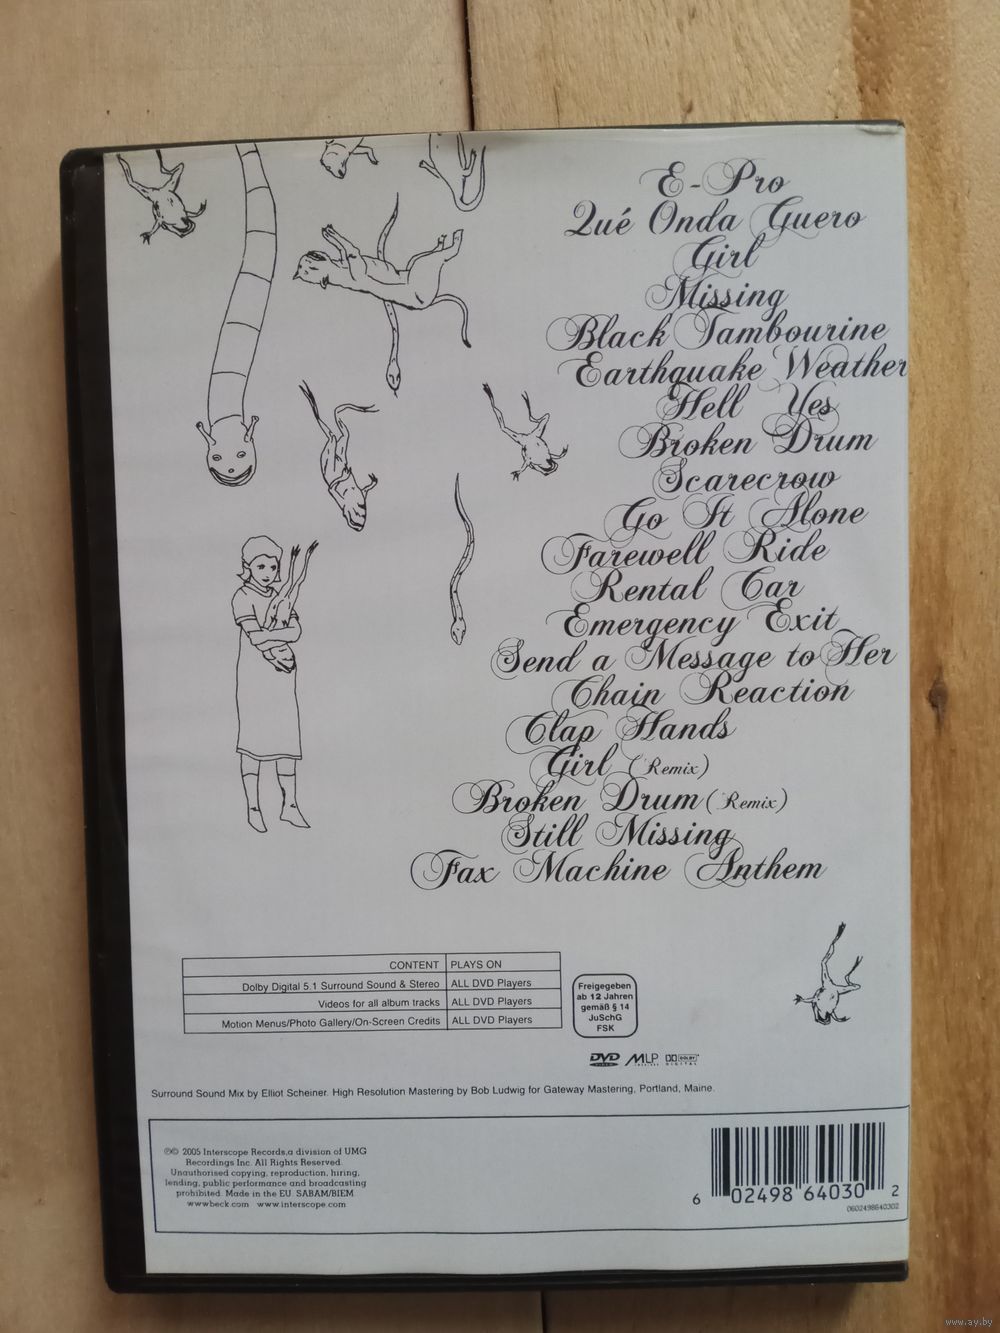 E-Pro
Qué Onda Guero
Girl
Missing
Black Tambourine
Earthquake Weather
Hell Yes
Broken Drum
Scarecrow
Go It Alone
Farewell Ride
Rental Car
Emergency Exit
Send a Message to Her
Chain Reaction
Clap Hands
Girl (Remix)
Broken Drum (Remix)
Still Missing
Fax Machine Anthem
CONTENT PLAYS ON
Dolby Digital 5.1 Surround Sound & Stereo ALL DVD Players
Videos for all album tracks ALL DVD Players
Motion Menus/Photo Gallery/On-Screen Credits ALL DVD Players
Freigegeben
ab 12 Jahren
gemäß § 14
JuSchG
FSK
DVD VIDEO MLP DOLBY DIGITAL
Surround Sound Mix by Elliot Scheiner. High Resolution Mastering by Bob Ludwig for Gateway Mastering, Portland, Maine.
℗© 2005 Interscope Records,a division of UMG
Recordings Inc. All Rights Reserved.
Unauthorised copying, reproduction, hiring,
lending, public performance and broadcasting
prohibited. Made in the EU. SABAM/BIEM
www.beck.com www.interscope.com
6 02498 64030 2
0602498640302
www.ay.by